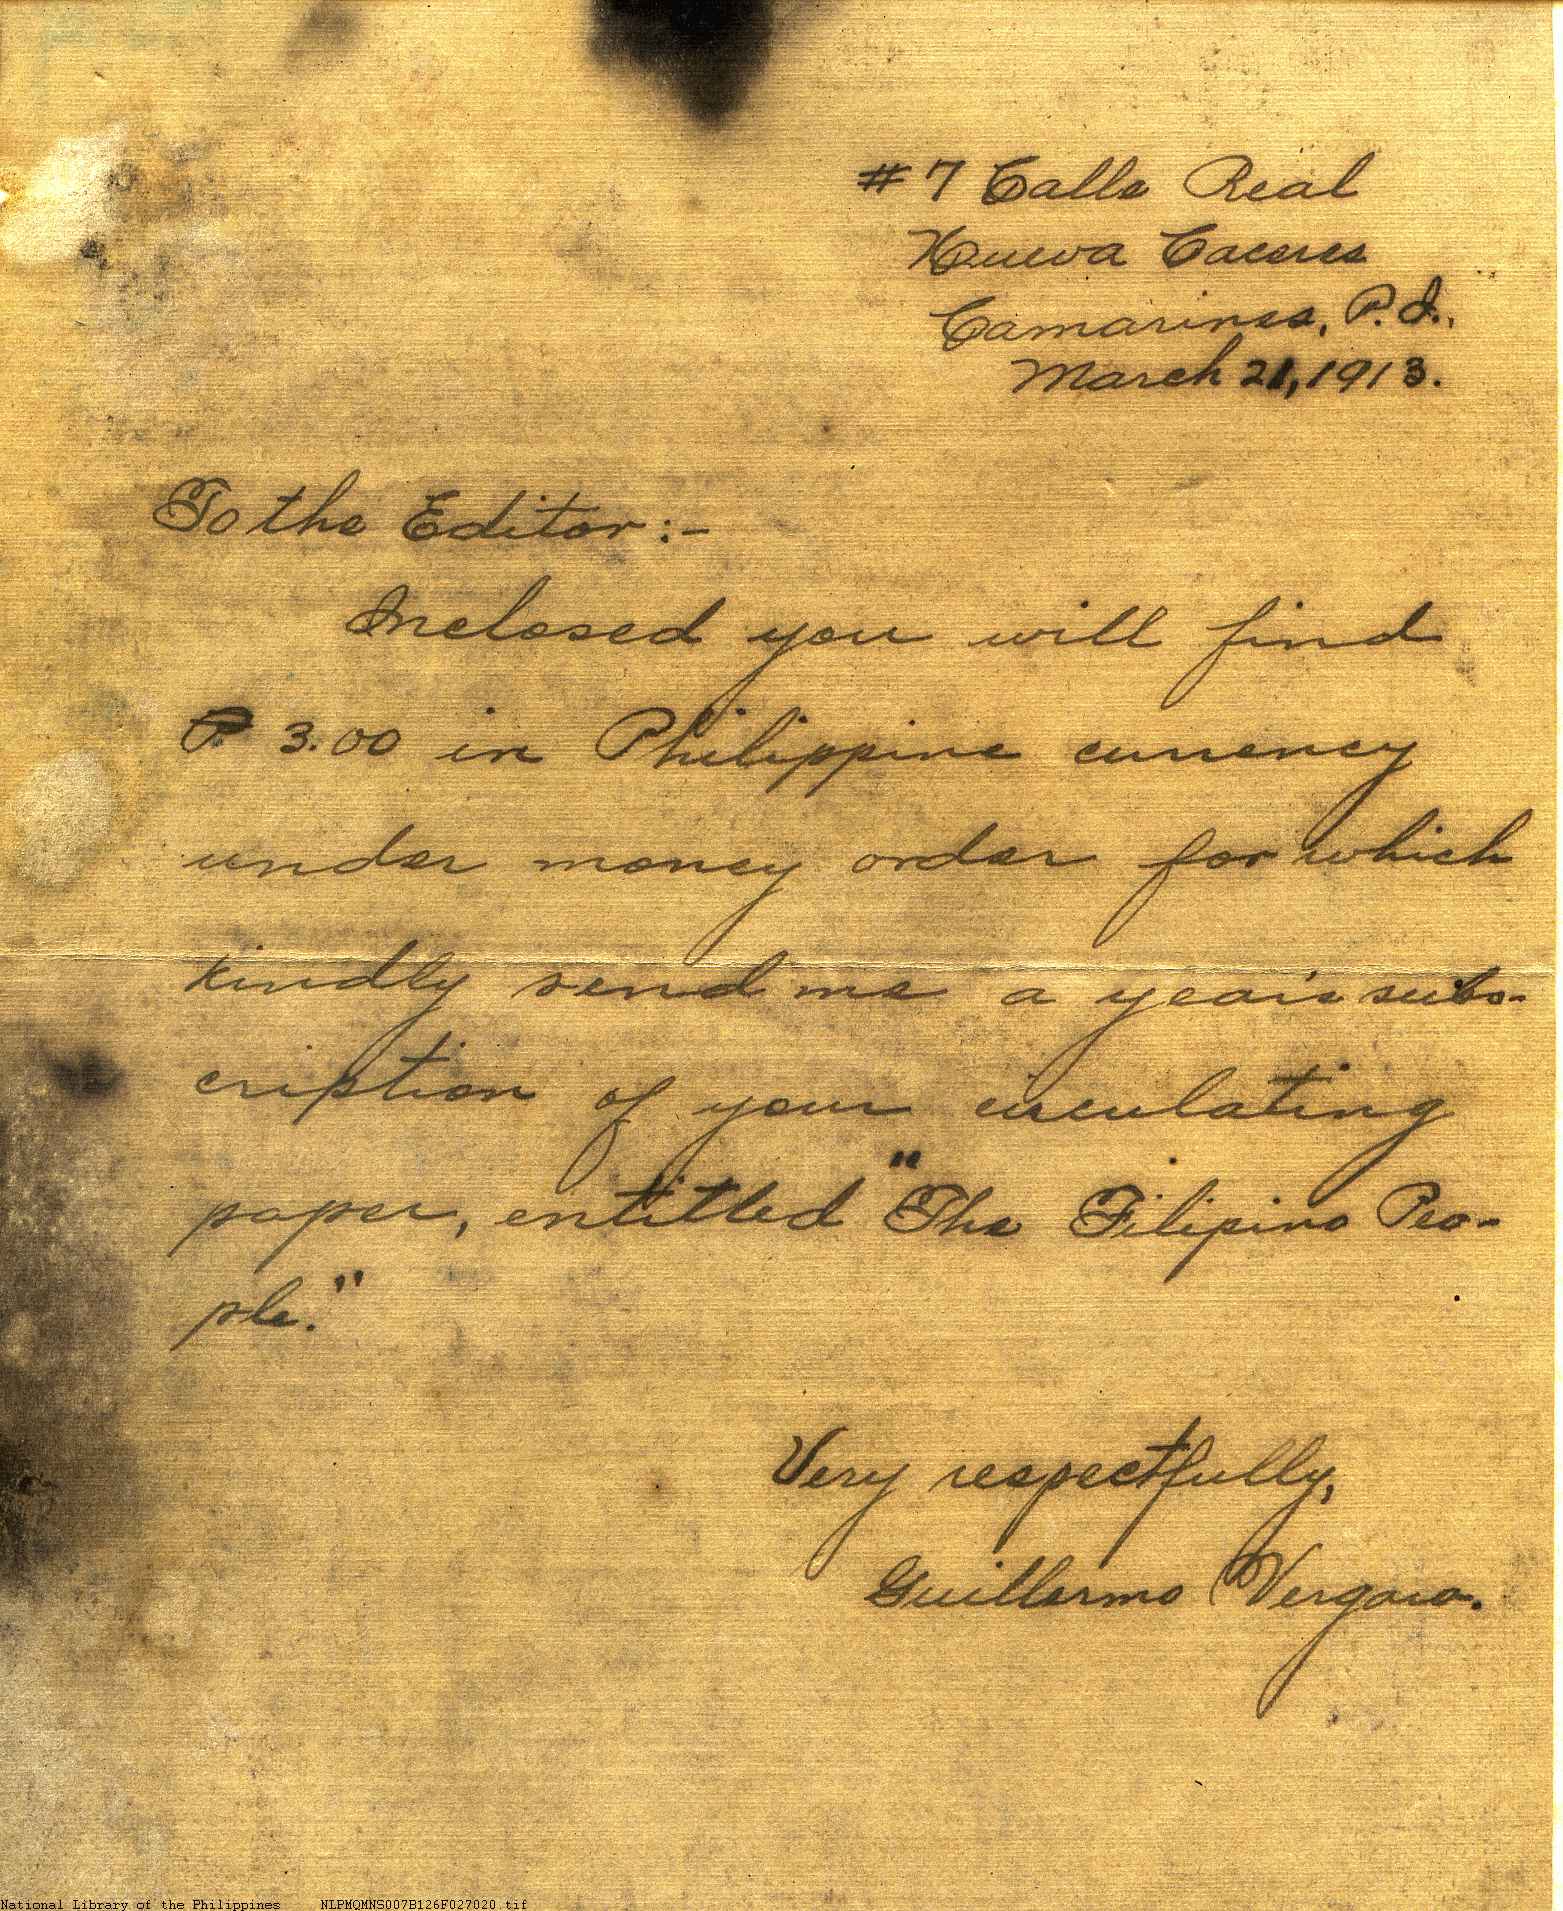 #7 Calle Real
Nueva Caceres
Camarines, P.I.,
March 21, 1913.
To the Editor:-
Inclosed you will find
₱ 3.00 in Philippine currency
under money order for which
kindly send me a year's subs-
cription of your circulating
paper, entitled "The Filipino Peo-
ple."
Very respectfully,
Guillermo Vergara.
National Library of the Philippines NLPMQMNS007B126F027020.tif